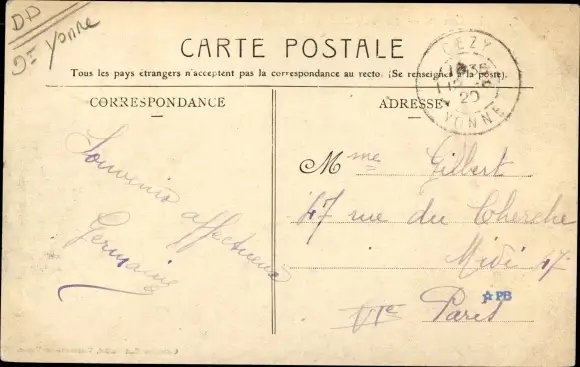 DD
Yonne
CARTE POSTALE
Tous les pays étrangers n'acceptent pas la correspondance au recto. (Se renseigner à la poste).
CEZY
20
YONNE
CORRESPONDANCE
ADRESSE
Souvenir affectueux
Germaine
Mme Gilbert
47 rue du Cherche
Midi 47
VIe Paris
PB